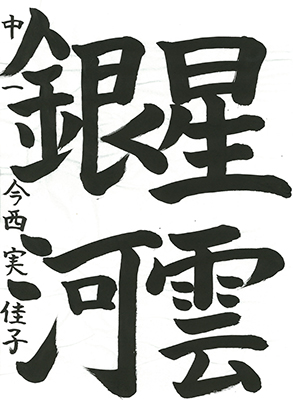 星雲
銀河
中一 今西実佳子